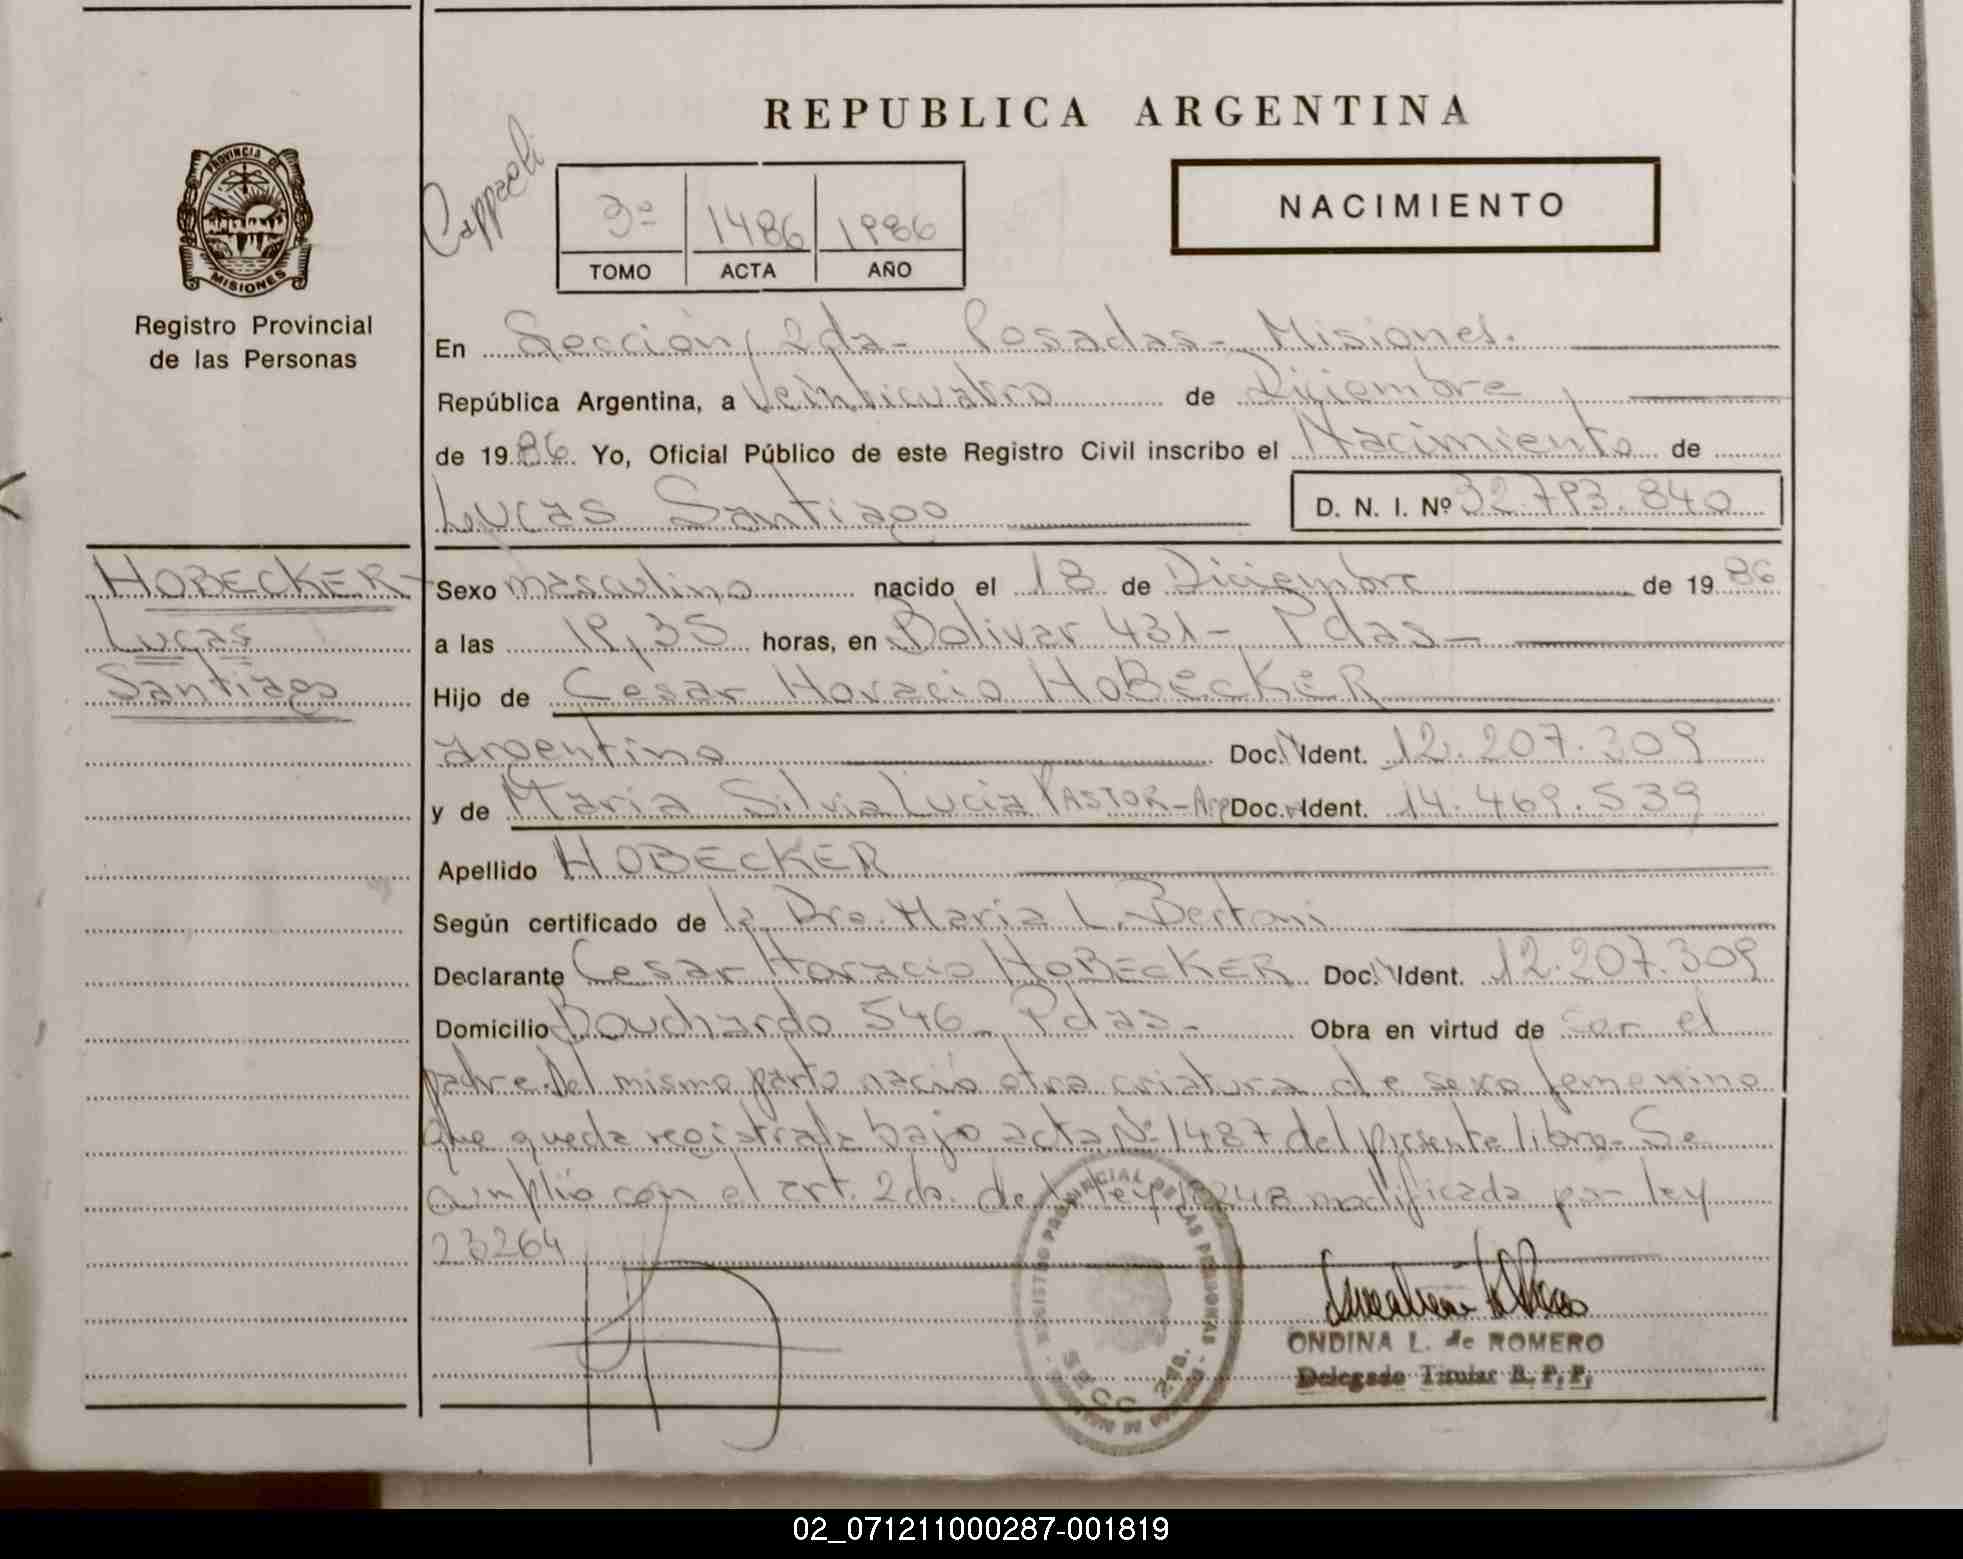 REPUBLICA ARGENTINA
PROVINCIA DE
MISIONES
Registro Provincial
de las Personas
Cappaeli
3º 1486 1986
TOMO ACTA AÑO
NACIMIENTO
En Sección 2da- Posadas- Misiones.
República Argentina, a Veinticuatro de Diciembre
de 1986 Yo, Oficial Público de este Registro Civil inscribo el Nacimiento de
Lucas Santiago D. N. I. Nº 32.793.840
HOBECKER-
Lucas
Santiago
Sexo masculino nacido el 18 de Diciembre de 1986
a las 19,35 horas, en Bolivar 431- Pdas-
Hijo de Cesar Horacio HOBECKER
argentino Doc. Ident. 12.207.309
y de Maria Silvia Lucia PASTOR-Arg Doc. Ident. 14.469.539
Apellido HOBECKER
Según certificado de la Dra. Maria L. Bertoni
Declarante Cesar Horacio HOBECKER Doc. Ident. 12.207.309
Domicilio Bouchardo 546- Pdas- Obra en virtud de ser el
padre. Del mismo parto nació otra criatura de sexo femenino
que queda registrada bajo acta Nº 1487 del presente libro- Se
amplió con el art. 2do. de la ley 18248 modificada por ley
23264
REGISTRO PROVINCIAL DE LAS PERSONAS
SECC 2da.
ONDINA L. de ROMERO
Delegado Titular R. P. P.
02_071211000287-001819